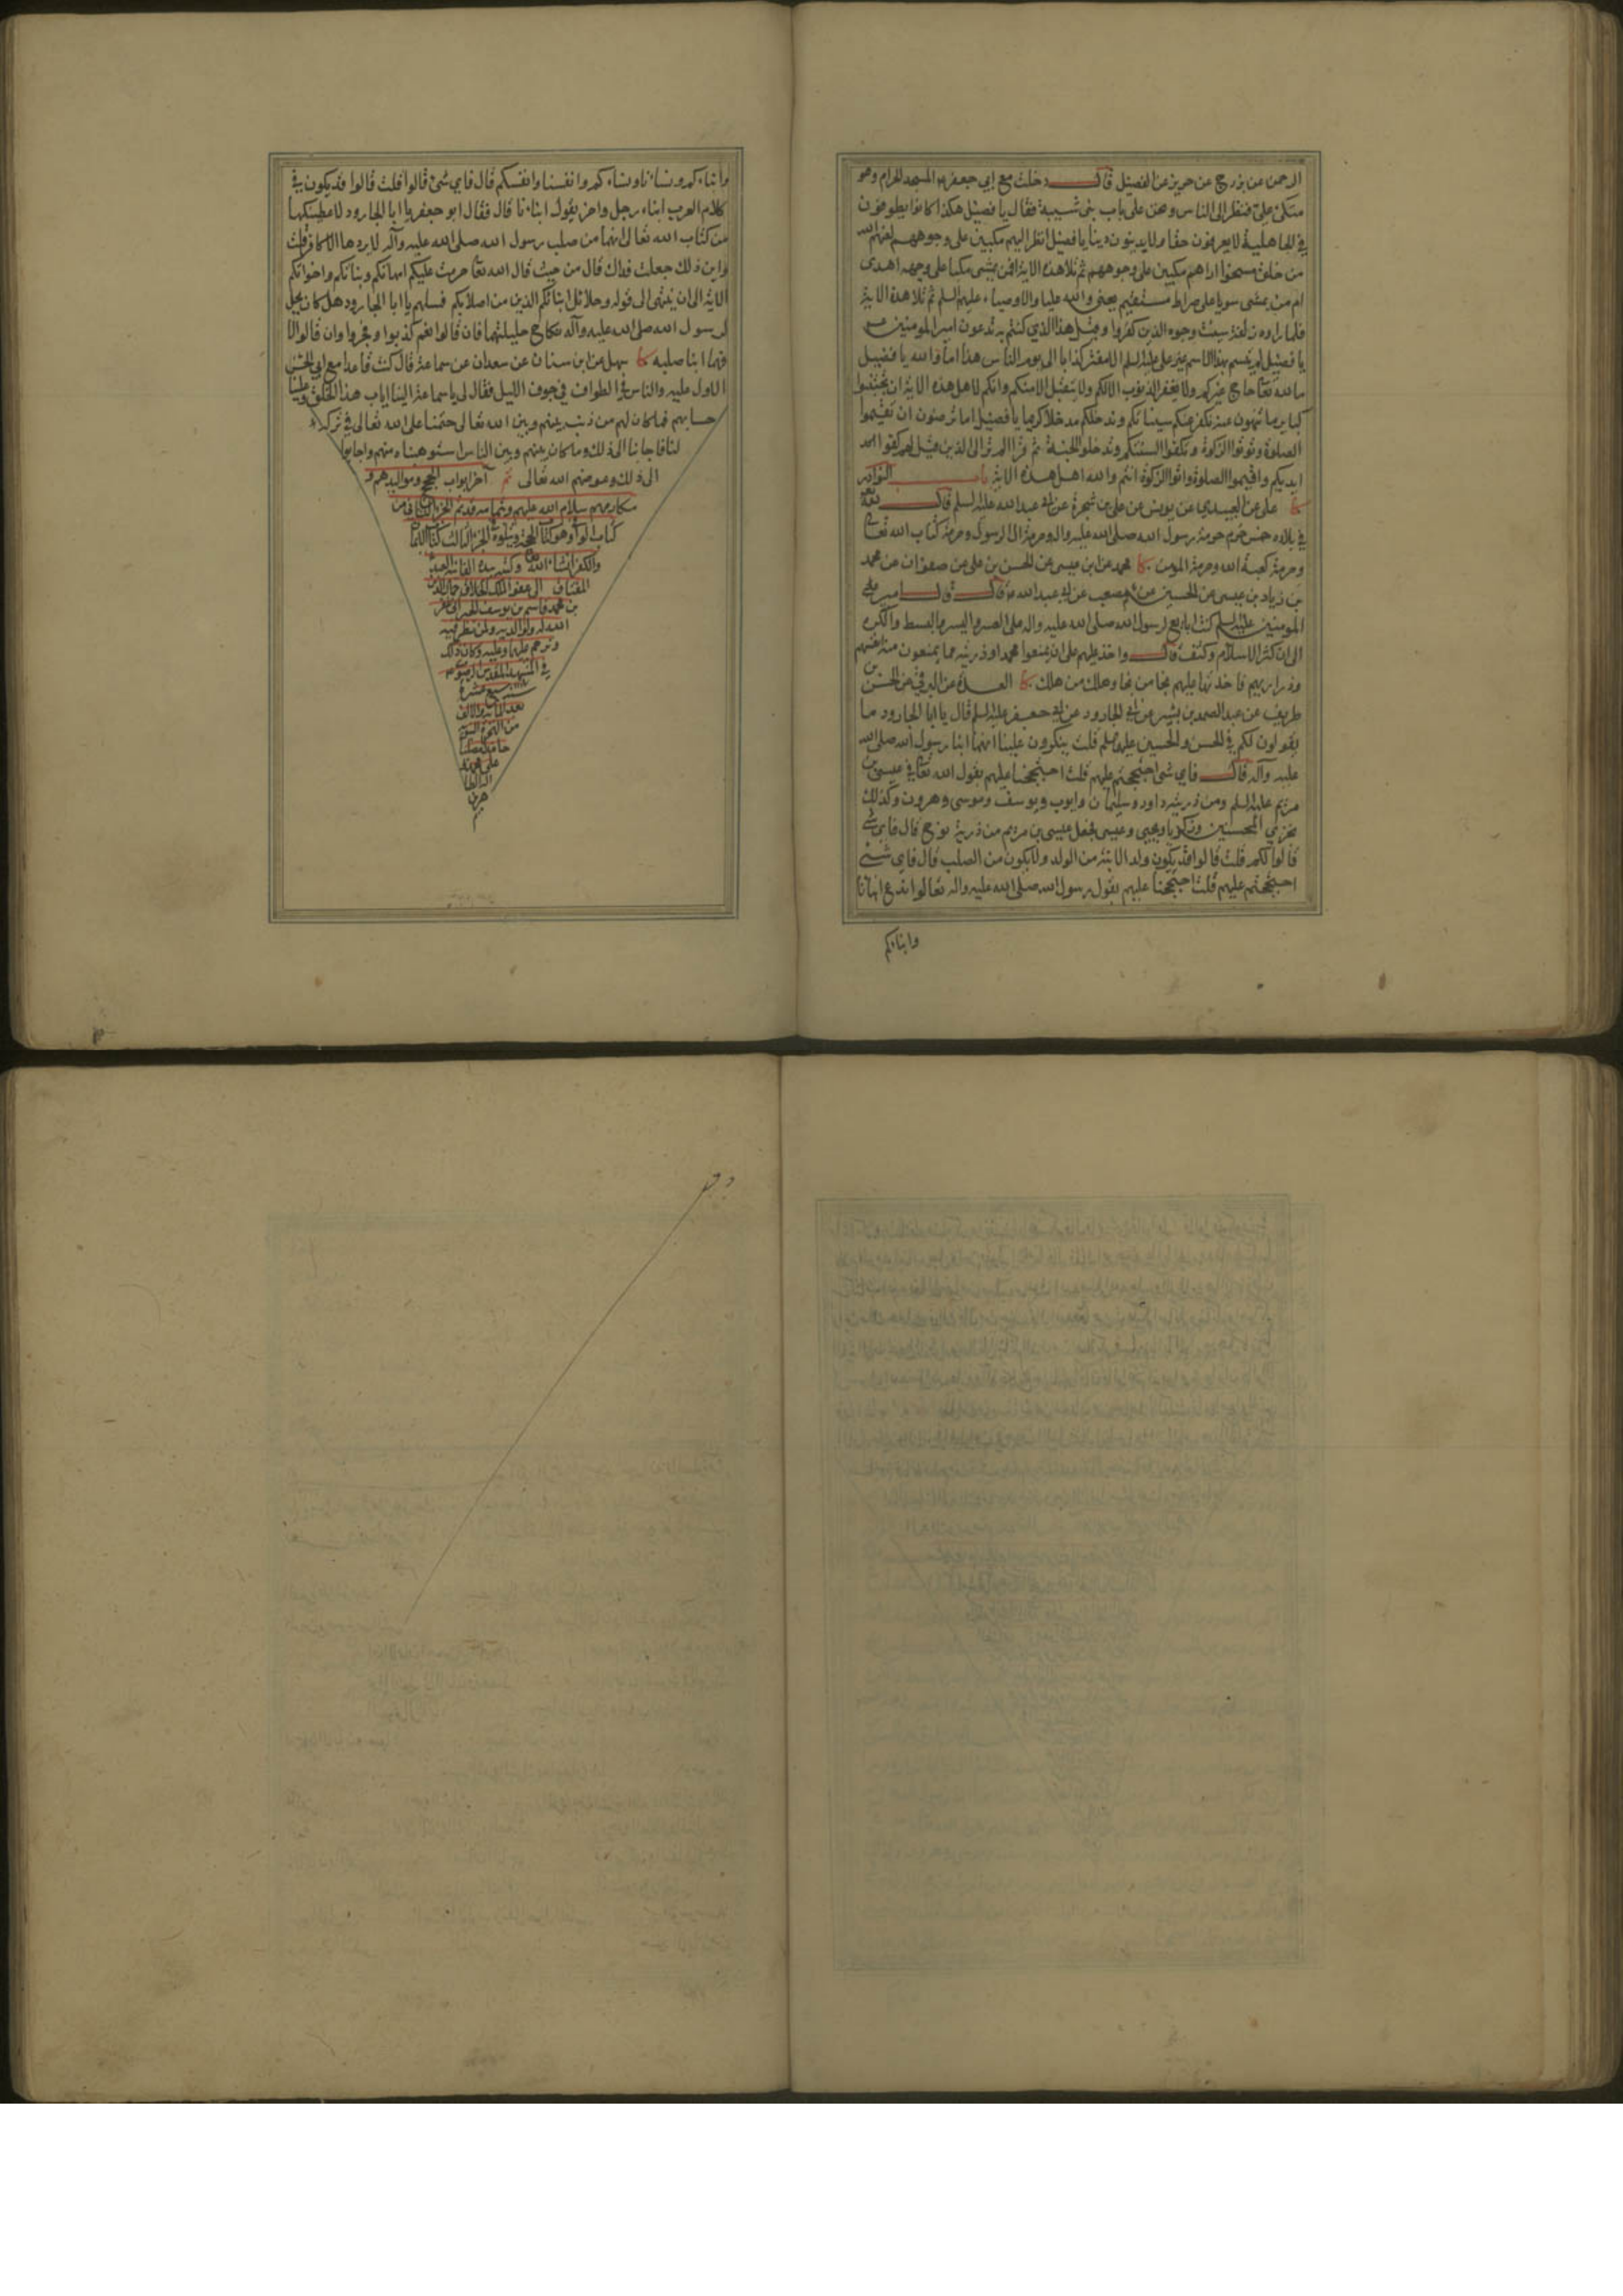 الرحمن عن بزرج عن حريز عن الفضيل قال دخلت مع ابي جعفر ع المسجد الحرام وهو
متكئ علي فنظر الى الناس ونحن على باب بني شيبة فقال يا فضيل هكذا كانوا يطوفون
في الجاهلية لا يعرفون حقا ولا يدينون دينا يا فضيل انظر اليهم مكبين على وجوههم لعنهم الله
من خلق مسخوا بهم مكبين على وجوههم ثم تلا هذه الاية افمن يمشي مكبا على وجهه اهدى
ام من يمشي سويا على صراط مستقيم يعني والله عليا والاوصياء عليهم السلم ثم تلا هذه الاية
فلما راوه زلفة سيئت وجوه الذين كفروا وقيل هذا الذي كنتم به تدعون امير المومنين
يا فضيل لم يتسم بهذا الاسم غير علي عليه السلم الا مفتر كذاب الى يوم الناس هذا اما والله يا فضيل
ما لله تعا حاج غيركم ولا يغفر الذنوب الا لكم ولا يتقبل الا منكم وانكم لاهل هذه الاية ان تجتنبوا
كباير ما تنهون عنه نكفر عنكم سيئاتكم وندخلكم مدخلا كريما يا فضيل اما ترضون ان تقيموا
الصلوة وتوتوا الزكوة وتكفوا السنتكم وتدخلوا الجنة ثم قرا الم تر الى الذين قيل لهم كفوا
ايديكم واقيموا الصلوة واتوا الزكوة انتم والله اهل هذه الاية باب النوادر
كا علي عن العبيدي عن يونس عن علي بن شجرة عن ابي عبد الله عليه السلم قال لله
في بلاده خمس حرم حرمة رسول الله صلى الله عليه واله وحرمة ال الرسول وحرمة كتاب الله تعا
وحرمة كعبة الله وحرمة المومن كا محمد عن ابن عيسى عن الحسن بن علي عن صفوان عن محمد
بن زياد بن عيسى عن الحسين بن مصعب عن ابي عبد الله ع قال قال امير
المومنين عليه السلم كنت ابايع لرسول الله صلى الله عليه واله على العسر واليسر والبسط والكره
الى ان كثر الاسلام وكثف قال واخذ عليهم على ان يمنعوا محمدا وذريته مما يمنعون منه انفسهم
وذراريهم فاخذتها عليهم نجا من نجا وهلك من هلك كا العدة عن البرقي عن الحسن بن
ظريف عن عبد الصمد بن بشير عن ابي الجارود عن ابي جعفر عليه السلم قال يا ابا الجارود ما
يقولون لكم في الحسن والحسين عليهما السلم قلت ينكرون علينا انهما ابنا رسول الله صلى الله
عليه وآله قال فاي شئ احتججتم عليهم قلت احتججنا عليهم بقول الله تعا في عيسى بن
مريم عليه السلم ومن ذريته داود وسليمان وايوب ويوسف وموسى وهرون وكذلك
نجزي المحسنين وزكريا ويحيى وعيسى فجعل عيسى بن مريم من ذرية نوح قال فاي شئ
قالوا لكم قلت قالوا قد يكون ولد الابنة من الولد ولا يكون من الصلب قال فاي شئ
احتججتم عليهم قلت احتججنا عليهم بقول رسول الله صلى الله عليه واله تعالوا ندع ابنائنا
وابناءكم
وابناءكم ونساءنا ونساءكم وانفسنا وانفسكم قال فاي شئ قالوا قلت قالوا قد يكون في
كلام العرب ابناء رجل واخر يقول ابناءنا قال فقال ابو جعفر يا ابا الجارود لاعطينكها
من كتاب الله تعالى انهما من صلب رسول الله صلى الله عليه وآله لا يردها الا كافر قلت
واين ذلك جعلت فداك قال من حيث قال الله تعا حرمت عليكم امهاتكم وبناتكم واخواتكم
الاية الى ان ينتهي الى قوله وحلائل ابنائكم الذين من اصلابكم فسلهم يا ابا الجارود هل كان يحل
لرسول الله صلى الله عليه وآله نكاح حليلتهما فان قالوا نعم كذبوا وفجروا وان قالوا لا
فهما ابنا صلبه كا سهل عن ابن سنان عن سعدان عن سماعة قال كنت قاعدا مع ابي الحسن
الاول عليه والناس في الطواف في جوف الليل فقال لي يا سماعة الينا اياب هذا الخلق وعلينا
حسابهم فما كان لهم من ذنب بينهم وبين الله تعالى حتمنا على الله تعالى في تركه
لنا فاجابنا الى ذلك وما كان بينهم وبين الناس استوهبناه منهم واجابوا
الى ذلك وعوضهم الله تعالى تم آخر ابواب الحجج ومواليدهم و
مكارمهم سلام الله عليهم وبتمامه قد تم الجزء الثاني من
كتاب الوافي وهو كتاب الحجة ويتلوه الجزء الثالث كتاب الايمان
والكفر انشاء الله تعا وكتبه بيده الفانية العبد
المفتاق الى عفو الملك الخلاق جمال الدين
بن محمد قاسم بن يوسف غفر
الله له ولوالديه ولمن نظر فيه
وترحم عليهما وعليه وكان ذلك
في المشهد المقدس الرضوي
سنة سبع عشرة
بعد المائة والالف
من الهجرة النبوية
حامدا مصليا
على محمد
واله